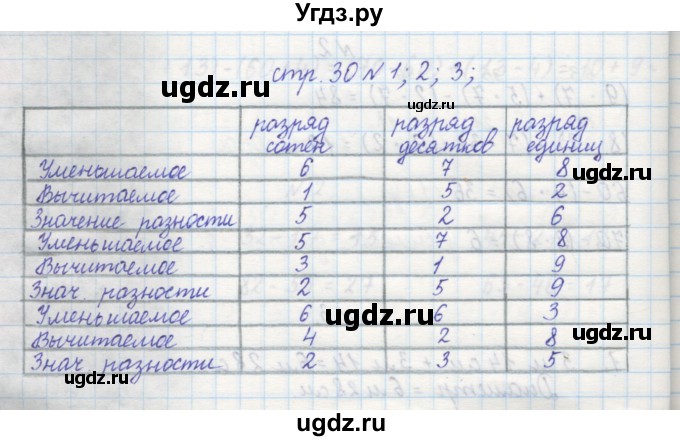 Угдз.ру
стр. 30 N 1; 2; 3;
разряд сотен разряд десятков разряд единиц
Уменьшаемое 6 7 8
Вычитаемое 1 5 2
Значение разности 5 2 6
Уменьшаемое 5 7 8
Вычитаемое 3 1 9
Знач. разности 2 5 9
Уменьшаемое 6 6 3
Вычитаемое 4 2 8
Знач разности 2 3 5
ugdz.ru
ugdz.ru
ugdz.ru
ugdz.ru
ugdz.ru
ugdz.ru
ugdz.ru
ugdz.ru